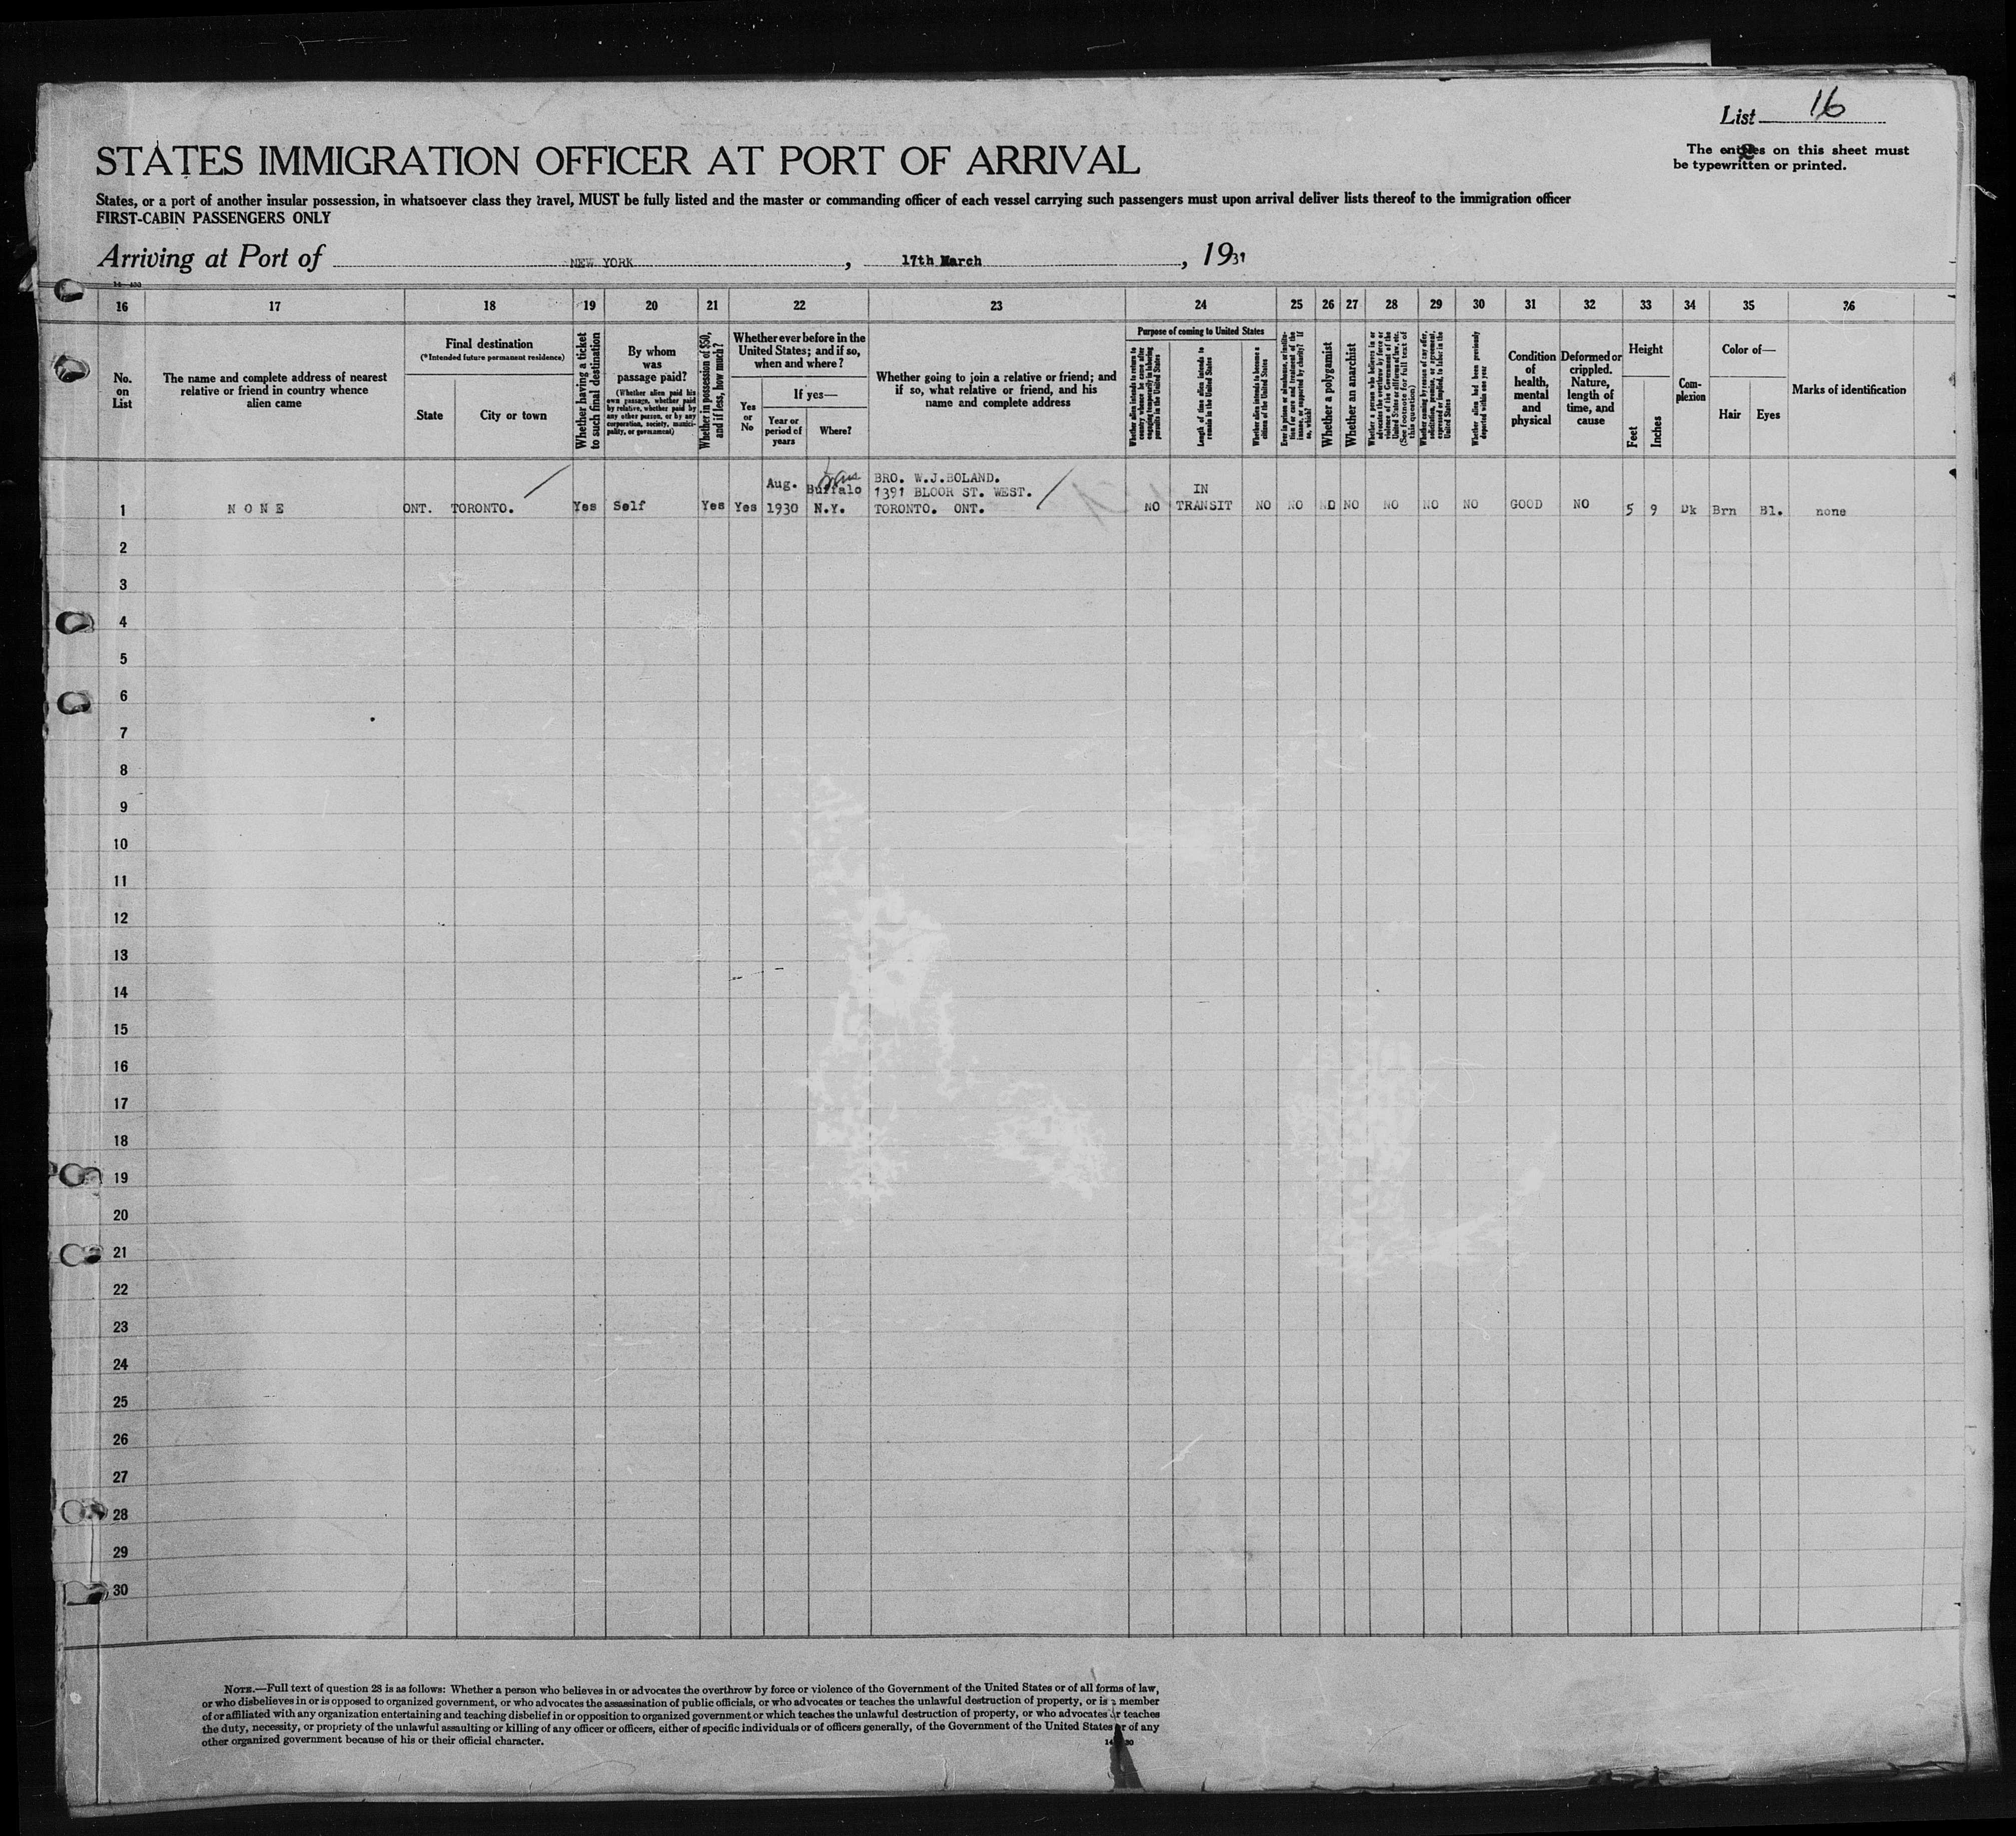 List 16
The entries on this sheet must
be typewritten or printed.
STATES IMMIGRATION OFFICER AT PORT OF ARRIVAL
States, or a port of another insular possession, in whatsoever class they travel, MUST be fully listed and the master or commanding officer of each vessel carrying such passengers must upon arrival deliver lists thereof to the immigration officer
FIRST-CABIN PASSENGERS ONLY
Arriving at Port of NEW YORK, 17th March, 1931
16 17 18 19 20 21 22 23 24 25 26 27 28 29 30 31 32 33 34 35 36
No.
on
List
The name and complete address of nearest
relative or friend in country whence
alien came
Final destination
(*Intended future permanent residence)
State
City or town
Whether having a ticket
to such final destination
By whom
was
passage paid?
(Whether alien paid his
own passage, whether paid
by relative, whether paid by
any other person, or by any
corporation, society, munici-
pality, or government)
Whether in possession of $50,
and if less, how much?
Whether ever before in the
United States; and if so,
when and where?
Yes
or
No
If yes—
Year or
period of
years
Where?
Whether going to join a relative or friend; and
if so, what relative or friend, and his
name and complete address
Purpose of coming to United States
Whether alien intends to return to
country whence he came after
engaging temporarily in laboring
pursuits in the United States
Length of time alien intends to
remain in the United States
Whether alien intends to become a
citizen of the United States
Ever in prison or almshouse, or institu-
tion for care and treatment of the
insane, or supported by charity? If
so, which?
Whether a polygamist
Whether an anarchist
Whether a person who believes in or
advocates the overthrow by force or
violence of the Government of the
United States or all forms of law, etc.
(See footnote for full text of
this question)
Whether coming by reason of any offer,
solicitation, promise, or agreement,
expressed or implied, to labor in the
United States
Whether alien had been previously
deported within one year
Condition
of
health,
mental
and
physical
Deformed or
crippled.
Nature,
length of
time, and
cause
Height
Feet
Inches
Com-
plexion
Color of—
Hair
Eyes
Marks of identification
Aug. Buffalo BRO. W.J.BOLAND.
1391 BLOOR ST. WEST. IN
1 NONE ONT. TORONTO. Yes Self Yes Yes 1930 N.Y. TORONTO. ONT. NO TRANSIT NO NO NO NO NO NO NO GOOD NO 5 9 Dk Brn Bl. none
2
3
4
5
6
7
8
9
10
11
12
13
14
15
16
17
18
19
20
21
22
23
24
25
26
27
28
29
30
NOTE.—Full text of question 28 is as follows: Whether a person who believes in or advocates the overthrow by force or violence of the Government of the United States or of all forms of law,
or who disbelieves in or is opposed to organized government, or who advocates the assassination of public officials, or who advocates or teaches the unlawful destruction of property, or is a member
of or affiliated with any organization entertaining and teaching disbelief in or opposition to organized government or which teaches the unlawful destruction of property, or who advocates or teaches
the duty, necessity, or propriety of the unlawful assaulting or killing of any officer or officers, either of specific individuals or of officers generally, of the Government of the United States or of any
other organized government because of his or their official character.